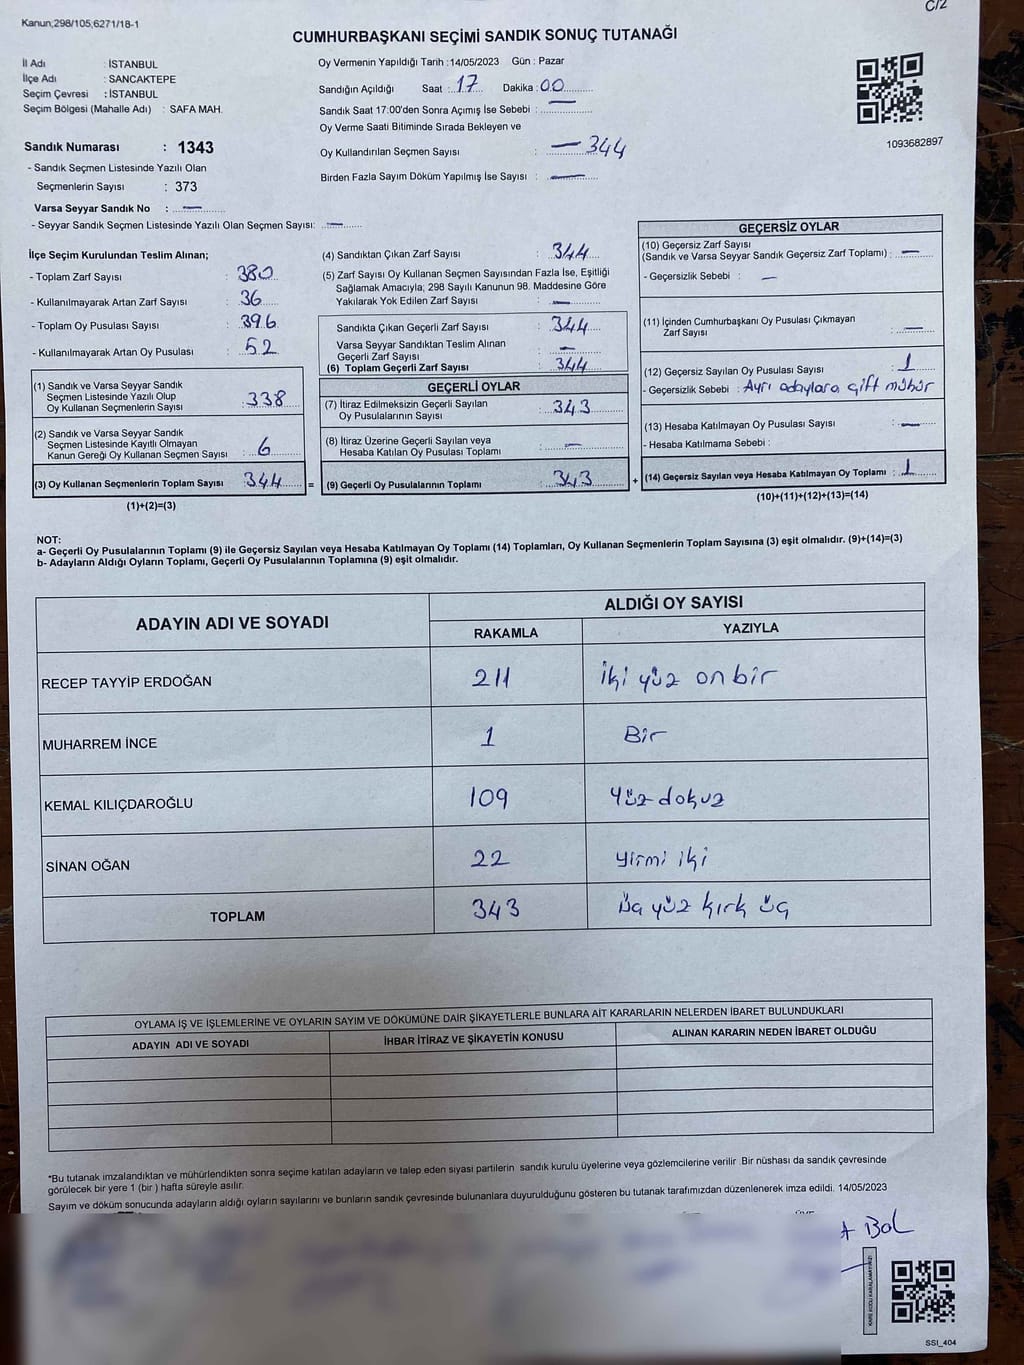 C/2
Kanun;298/105;6271/18-1
CUMHURBAŞKANI SEÇİMİ SANDIK SONUÇ TUTANAĞI
İl Adı : İSTANBUL
İlçe Adı : SANCAKTEPE
Seçim Çevresi : İSTANBUL
Seçim Bölgesi (Mahalle Adı) : SAFA MAH.
Sandık Numarası : 1343
- Sandık Seçmen Listesinde Yazılı Olan
Seçmenlerin Sayısı : 373
Varsa Seyyar Sandık No : —
- Seyyar Sandık Seçmen Listesinde Yazılı Olan Seçmen Sayısı: —
Oy Vermenin Yapıldığı Tarih :14/05/2023 Gün : Pazar
Sandığın Açıldığı Saat : 17 Dakika : 00
Sandık Saat 17:00'den Sonra Açımış İse Sebebi : —
Oy Verme Saati Bitiminde Sırada Bekleyen ve
Oy Kullandırılan Seçmen Sayısı : — 344
Birden Fazla Sayım Döküm Yapılmış İse Sayısı : —
1093682897
İlçe Seçim Kurulundan Teslim Alınan;
- Toplam Zarf Sayısı : 380
- Kullanılmayarak Artan Zarf Sayısı : 36
- Toplam Oy Pusulası Sayısı : 396
- Kullanılmayarak Artan Oy Pusulası : 52
(1) Sandık ve Varsa Seyyar Sandık
Seçmen Listesinde Yazılı Olup
Oy Kullanan Seçmenlerin Sayısı : 338
(2) Sandık ve Varsa Seyyar Sandık
Seçmen Listesinde Kayıtlı Olmayan
Kanun Gereği Oy Kullanan Seçmen Sayısı : 6
(3) Oy Kullanan Seçmenlerin Toplam Sayısı : 344 =
(1)+(2)=(3)
(4) Sandıktan Çıkan Zarf Sayısı : 344
(5) Zarf Sayısı Oy Kullanan Seçmen Sayısından Fazla İse, Eşitliği
Sağlamak Amacıyla; 298 Sayılı Kanunun 98. Maddesine Göre
Yakılarak Yok Edilen Zarf Sayısı : —
Sandıkta Çıkan Geçerli Zarf Sayısı : 344
Varsa Seyyar Sandıktan Teslim Alınan
Geçerli Zarf Sayısı : —
(6) Toplam Geçerli Zarf Sayısı : 344
GEÇERLİ OYLAR
(7) İtiraz Edilmeksizin Geçerli Sayılan
Oy Pusulalarının Sayısı : 343
(8) İtiraz Üzerine Geçerli Sayılan veya
Hesaba Katılan Oy Pusulası Toplamı : —
(9) Geçerli Oy Pusulalarının Toplamı : 343 +
GEÇERSİZ OYLAR
(10) Geçersiz Zarf Sayısı
(Sandık ve Varsa Seyyar Sandık Geçersiz Zarf Toplamı) : —
- Geçersizlik Sebebi : —
(11) İçinden Cumhurbaşkanı Oy Pusulası Çıkmayan
Zarf Sayısı : —
(12) Geçersiz Sayılan Oy Pusulası Sayısı : 1
- Geçersizlik Sebebi : Ayrı adaylara çift mühür
(13) Hesaba Katılmayan Oy Pusulası Sayısı : —
- Hesaba Katılmama Sebebi :
(14) Geçersiz Sayılan veya Hesaba Katılmayan Oy Toplamı : 1
(10)+(11)+(12)+(13)=(14)
NOT:
a- Geçerli Oy Pusulalarının Toplamı (9) ile Geçersiz Sayılan veya Hesaba Katılmayan Oy Toplamı (14) Toplamları, Oy Kullanan Seçmenlerin Toplam Sayısına (3) eşit olmalıdır. (9)+(14)=(3)
b- Adayların Aldığı Oyların Toplamı, Geçerli Oy Pusulalarının Toplamına (9) eşit olmalıdır.
ADAYIN ADI VE SOYADI ALDIĞI OY SAYISI
RAKAMLA YAZIYLA
RECEP TAYYİP ERDOĞAN 211 iki yüz on bir
MUHARREM İNCE 1 Bir
KEMAL KILIÇDAROĞLU 109 yüz dokuz
SİNAN OĞAN 22 yirmi iki
TOPLAM 343 üç yüz kırk üç
OYLAMA İŞ VE İŞLEMLERİNE VE OYLARIN SAYIM VE DÖKÜMÜNE DAİR ŞİKAYETLERLE BUNLARA AİT KARARLARIN NELERDEN İBARET BULUNDUKLARI
ADAYIN ADI VE SOYADI İHBAR İTİRAZ VE ŞİKAYETİN KONUSU ALINAN KARARIN NEDEN İBARET OLDUĞU
*Bu tutanak imzalandıktan ve mühürlendikten sonra seçime katılan adayların ve talep eden siyasi partilerin sandık kurulu üyelerine veya gözlemcilerine verilir. Bir nüshası da sandık çevresinde
görülecek bir yere 1 (bir ) hafta süreyle asılır.
Sayım ve döküm sonucunda adayların aldığı oyların sayılarını ve bunların sandık çevresinde bulunanlara duyurulduğunu gösteren bu tutanak tarafımızdan düzenlenerek imza edildi. 14/05/2023
A BOL
KARE KODU KARALAMAYINIZ!
SSI_404